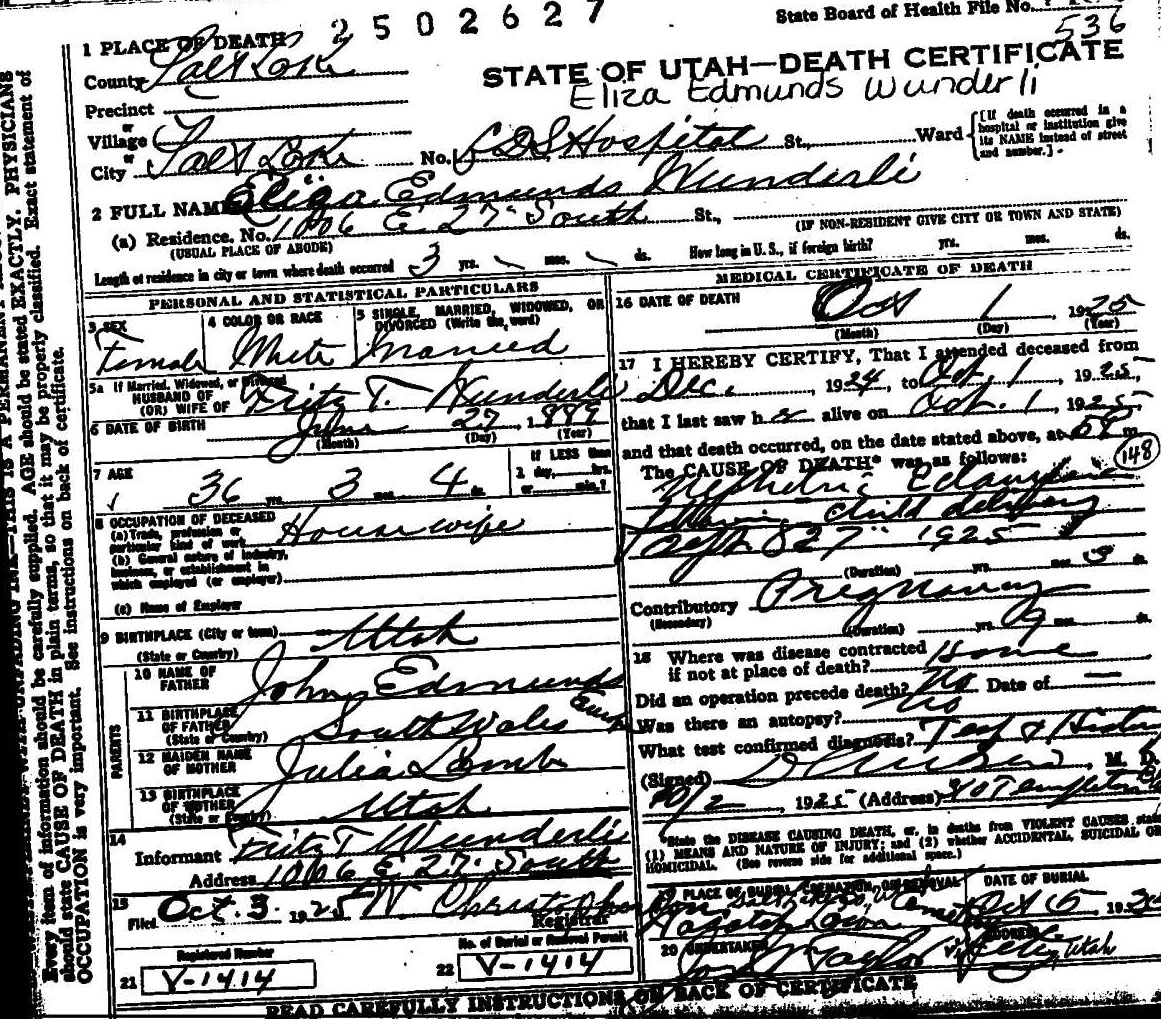 2502627
State Board of Health File No.
536
1 PLACE OF DEATH
STATE OF UTAH—DEATH CERTIFICATE
Eliza Edmunds Wunderli
County Salt Lake
Precinct
or
Village
or
City Salt Lake No. LDS Hospital St., Ward
[If death occurred in a
hospital or institution give
its NAME instead of street
and number.]
2 FULL NAME Eliza Edmunds Wunderli
(a) Residence. No. 1006 E 27" South St.,
(USUAL PLACE OF ABODE)
(IF NON-RESIDENT GIVE CITY OR TOWN AND STATE)
Length of residence in city or town where death occurred 3 yrs. mos. ds.
How long in U. S., if foreign birth? yrs. mos. ds.
PERSONAL AND STATISTICAL PARTICULARS
3 SEX
Female
4 COLOR OR RACE
White
5 SINGLE, MARRIED, WIDOWED, OR
DIVORCED (Write the word)
Married
5a If Married, Widowed, or Divorced
HUSBAND OF
(OR) WIFE OF Fritz T. Wunderli
6 DATE OF BIRTH June 27 1889
(Month) (Day) (Year)
7 AGE
36 yrs. 3 mos. 4 ds.
If LESS than
1 day, hrs.
or min.?
8 OCCUPATION OF DECEASED
(a) Trade, profession or
particular kind of work Housewife
(b) General nature of industry,
business, or establishment in
which employed (or employer)
(c) Name of Employer
9 BIRTHPLACE (City or town)
(State or Country) Utah
PARENTS
10 NAME OF
FATHER John Edmunds
11 BIRTHPLACE
OF FATHER
(State or Country) South Wales
12 MAIDEN NAME
OF MOTHER Julia Lamb
13 BIRTHPLACE
OF MOTHER
(State or Country) Utah
14
Informant Fritz T Wunderli
Address 1006 E 27" South
15
Filed Oct. 3, 1925
Registrar
Registered Number
21 V-1414
No. of Burial or Removal Permit
22 V-1414
MEDICAL CERTIFICATE OF DEATH
16 DATE OF DEATH
Oct 1, 1925
(Month) (Day) (Year)
17 I HEREBY CERTIFY, That I attended deceased from
Dec. 1924, to Oct. 1, 1925,
that I last saw her alive on Oct. 1, 1925,
and that death occurred, on the date stated above, at m.
148
The CAUSE OF DEATH* was as follows:
Nephritic Eclampsia
following child delivery
Sept 27" 1925
(Duration) yrs. mos. 3 ds.
Contributory Pregnancy
(Secondary)
(Duration) yrs. 9 mos. ds.
18 Where was disease contracted
if not at place of death? Home
Did an operation precede death? No Date of —
Was there an autopsy? No
What test confirmed diagnosis? Test & History
(Signed) M. D.
10/2, 1925 (Address) Templeton
*State the DISEASE CAUSING DEATH, or, in deaths from VIOLENT CAUSES, state
(1) MEANS AND NATURE OF INJURY; and (2) whether ACCIDENTAL, SUICIDAL OR
HOMICIDAL. (See reverse side for additional space.)
19 PLACE OF BURIAL, CREMATION, OR REMOVAL
Wasatch Lawn
DATE OF BURIAL
Oct 5, 192
20 UNDERTAKER
ADDRESS
Taylor
Utah
READ CAREFULLY INSTRUCTIONS ON BACK OF CERTIFICATE
Every item of information should be carefully supplied. AGE should be stated EXACTLY. PHYSICIANS
should state CAUSE OF DEATH in plain terms, so that it may be properly classified. Exact statement of
OCCUPATION is very important. See instructions on back of certificate.